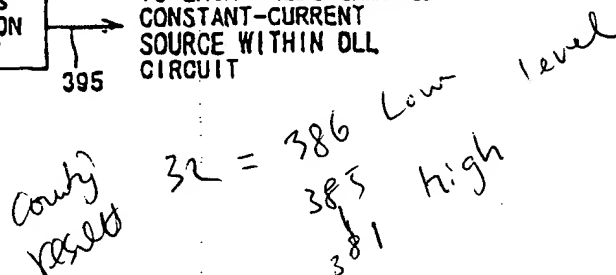 ON
CONSTANT-CURRENT
SOURCE WITHIN DLL
CIRCUIT
395
32 = 386 Low level
385 high
381